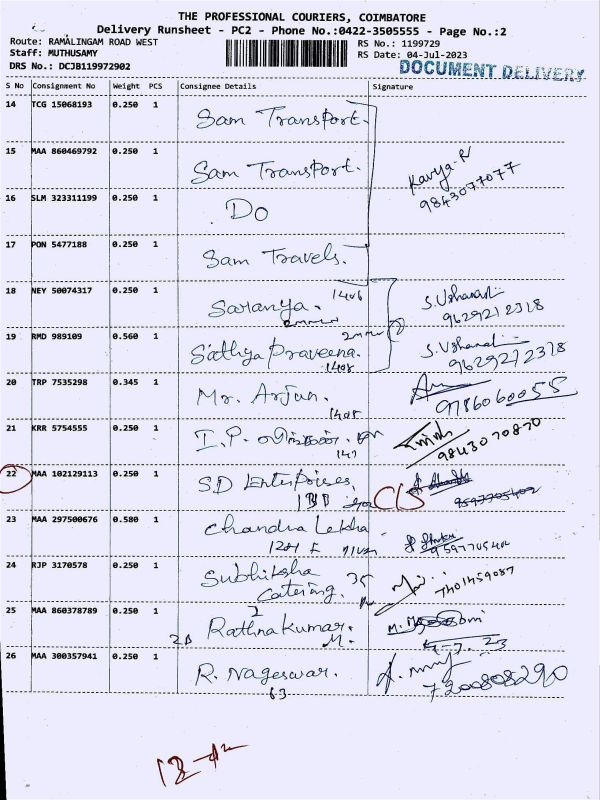 THE PROFESSIONAL COURIERS, COIMBATORE
Delivery Runsheet - PC2 - Phone No.:0422-3505555 - Page No.:2
Route: RAMALINGAM ROAD WEST
Staff: MUTHUSAMY
DRS No.: DCJB119972902
RS No.: 1199729
RS Date: 04-Jul-2023
DOCUMENT DELIVERY
S No Consignment No Weight PCS Consignee Details Signature
14 TCG 15068193 0.250 1 Sam Transport.
15 MAA 860469792 0.250 1 Sam Transport. Kavya-R
9843077077
16 SLM 323311199 0.250 1 DO
17 PON 5477188 0.250 1 Sam Travels.
18 NEY 50074317 0.250 1 Saranya. 1408 S.Usharani
9629212318
19 RMD 989109 0.560 1 Sathya Praveena. S.Usharani
1408 9629212318
20 TRP 7535298 0.345 1 Mr. Arjun.
1408 9786060055
21 KRR 5754555 0.250 1 I.P.
9843070870
22 MAA 102129113 0.250 1 SD Enterprises,
23 MAA 297500676 0.580 1 Chandra Lekha
9597705402
24 RJP 3170578 0.250 1 Subhiksha
Catering. 35 7401459087
25 MAA 860378789 0.250 1 Rathnakumar.
M.
26 MAA 300357941 0.250 1 R. Nageswar.
63 7200808290